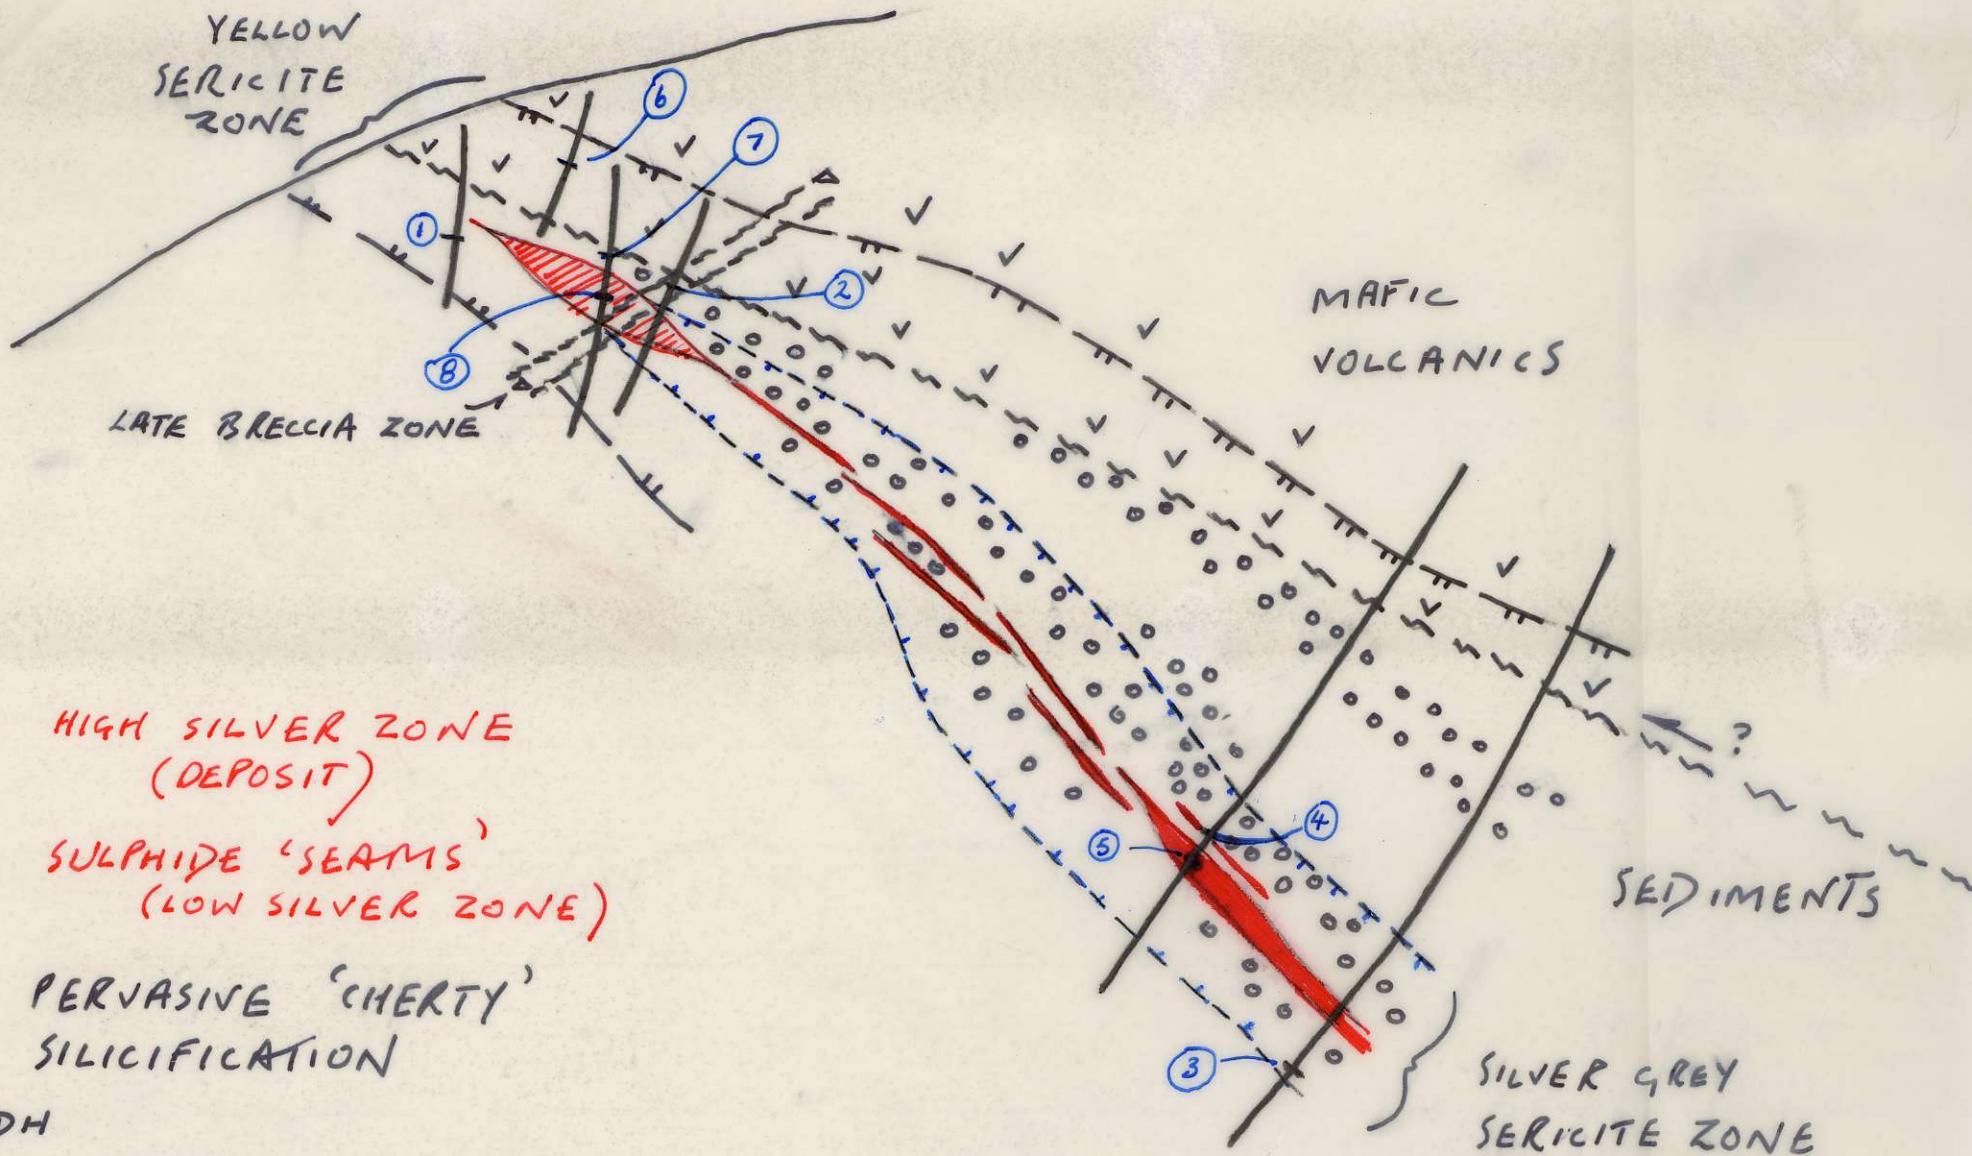 YELLOW
SERICITE
ZONE
6
7
1
2
8
LATE BRECCIA ZONE
MAFIC
VOLCANICS
?
HIGH SILVER ZONE
(DEPOSIT)
SULPHIDE 'SEAMS'
(LOW SILVER ZONE)
PERVASIVE 'CHERTY'
SILICIFICATION
DH
4
5
SEDIMENTS
3
SILVER GREY
SERICITE ZONE